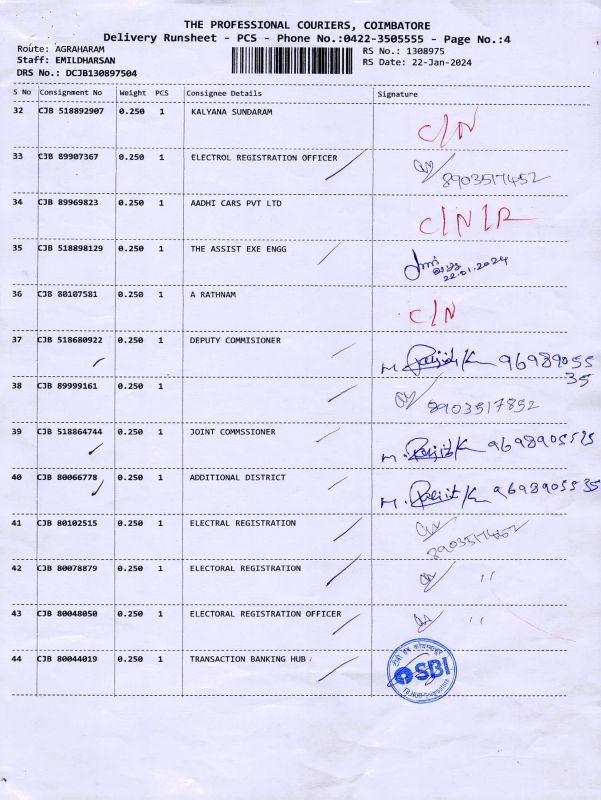 THE PROFESSIONAL COURIERS, COIMBATORE
Delivery Runsheet - PCS - Phone No.:0422-3505555 - Page No.:4
Route: AGRAHARAM
RS No.: 1308975
Staff: EMILDHARSAN
RS Date: 22-Jan-2024
DRS No.: DCJB130897504
S No Consignment No Weight PCS Consignee Details Signature
32 CJB 518892907 0.250 1 KALYANA SUNDARAM C/N
33 CJB 89907367 0.250 1 ELECTROL REGISTRATION OFFICER 8903517452
34 CJB 89969823 0.250 1 AADHI CARS PVT LTD C/N/R
35 CJB 518898129 0.250 1 THE ASSIST EXE ENGG
22.01.2024
36 CJB 80107581 0.250 1 A RATHNAM C/N
37 CJB 518680922 0.250 1 DEPUTY COMMISIONER
M. 96989055
35
38 CJB 89999161 0.250 1 8903517852
39 CJB 518864744 0.250 1 JOINT COMMSSIONER
M.
40 CJB 80066778 0.250 1 ADDITIONAL DISTRICT
M. 9698905535
41 CJB 80102515 0.250 1 ELECTRAL REGISTRATION
8903517452
42 CJB 80078879 0.250 1 ELECTORAL REGISTRATION "
43 CJB 80048050 0.250 1 ELECTORAL REGISTRATION OFFICER "
44 CJB 80044019 0.250 1 TRANSACTION BANKING HUB
SBI